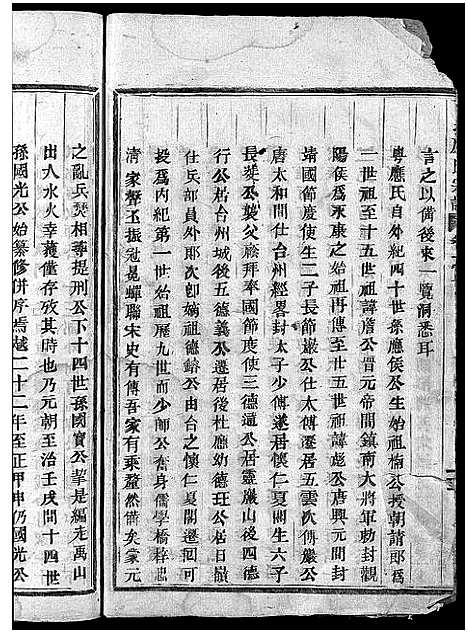 言之以備後來一覽洞悉耳
粵應氏自外紀四十世孫應侯公生始祖楠公授朝請郎爲
一世祖至十五世祖諱詹公晋元帝間鎮南大將軍勅封觀
陽侯爲永康之始祖再傳至廿五世祖諱彪公唐興元間封
靖國節度使生二子長諱嚴公仕太傅遷居五雲次傅嚴公
唐太和間台州經畧封太子少傅遂居懷仁夏閣生六子
長從公襲父祿拜奉國節度使三德遍公居靈巖山後四德
行公居台州城後五德義公遷居後杜廱幼德班公居日嶺
仕兵部員外郎次即嫡祖德鎔公由台之懷仁夏閣遷可
投爲內紀第一世始祖展九世而少師公奮身儒學橋梓忠
清家幣玉振冠冕蟬聯宋史有傳吾家有乘釐然備矣蒙元
之亂兵焚相尋提刑公下十四世孫國寶公挈是編走禹山
出入水火幸獲僅存攷其時也乃元朝至治壬戌間十四世
孫國光公始纂修併序焉越二十二年至正甲申仍國光公